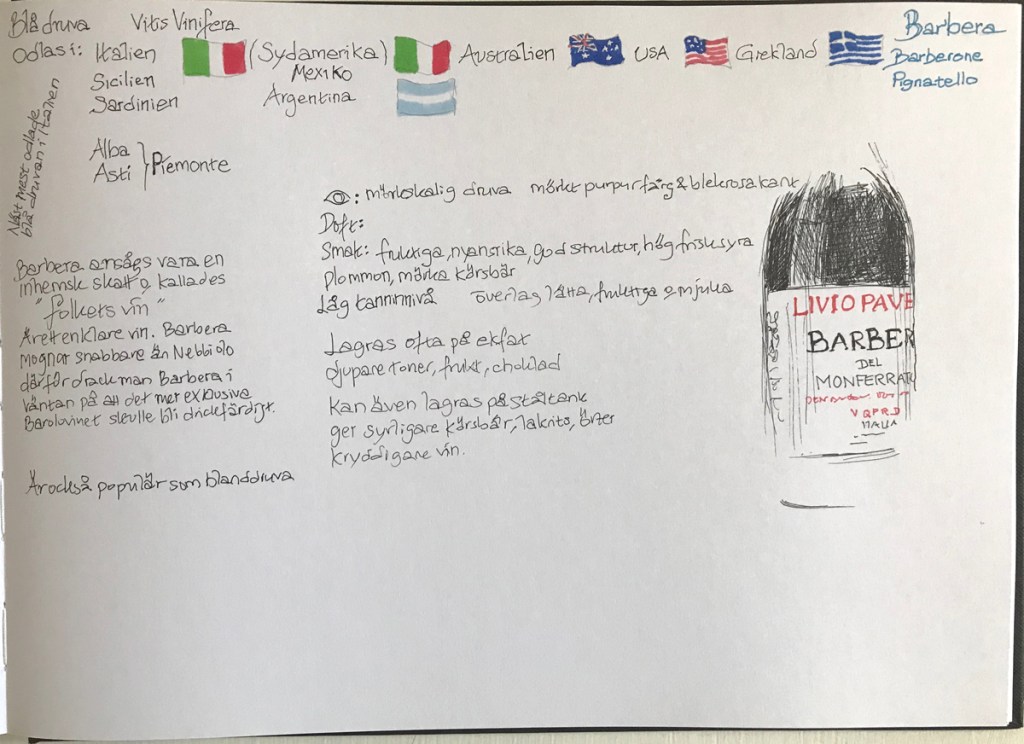 Blå druva Vitis Vinifera
Odlas i: Italien (Sydamerika) Australien USA Grekland
Mexiko
Sicilien
Argentina
Sardinien
Barbera
Barberone
Pignatello
Näst mest odlade
blå druvan i Italien
Alba
Asti } Piemonte
Barbera ansågs vara en
inhemsk skatt o kallades
"folkets vin"
Är ett enklare vin. Barbera
mognar snabbare än Nebbiolo
därför drack man Barbera i
väntan på att det mer exklusiva
Barolovinet skulle bli drickfärdigt.
Är också populär som blanddruva
: mörkskalig druva mörkt purpurfärg & blekrosa kant
Doft:
Smak: fruktiga, nyansrika, god struktur, hög frisk syra
Plommon, mörka körsbär
Låg tanninnivå överlag lätta, fruktiga o mjuka
Lagras ofta på ekfat
djupare toner, frukt, choklad
Kan även lagras på ståltank
ger syrligare körsbär, lakrits, örter
kryddigare vin.
LIVIO PAVE
BARBER
DEL
MONFERRAT
VQPRD
ITALIA